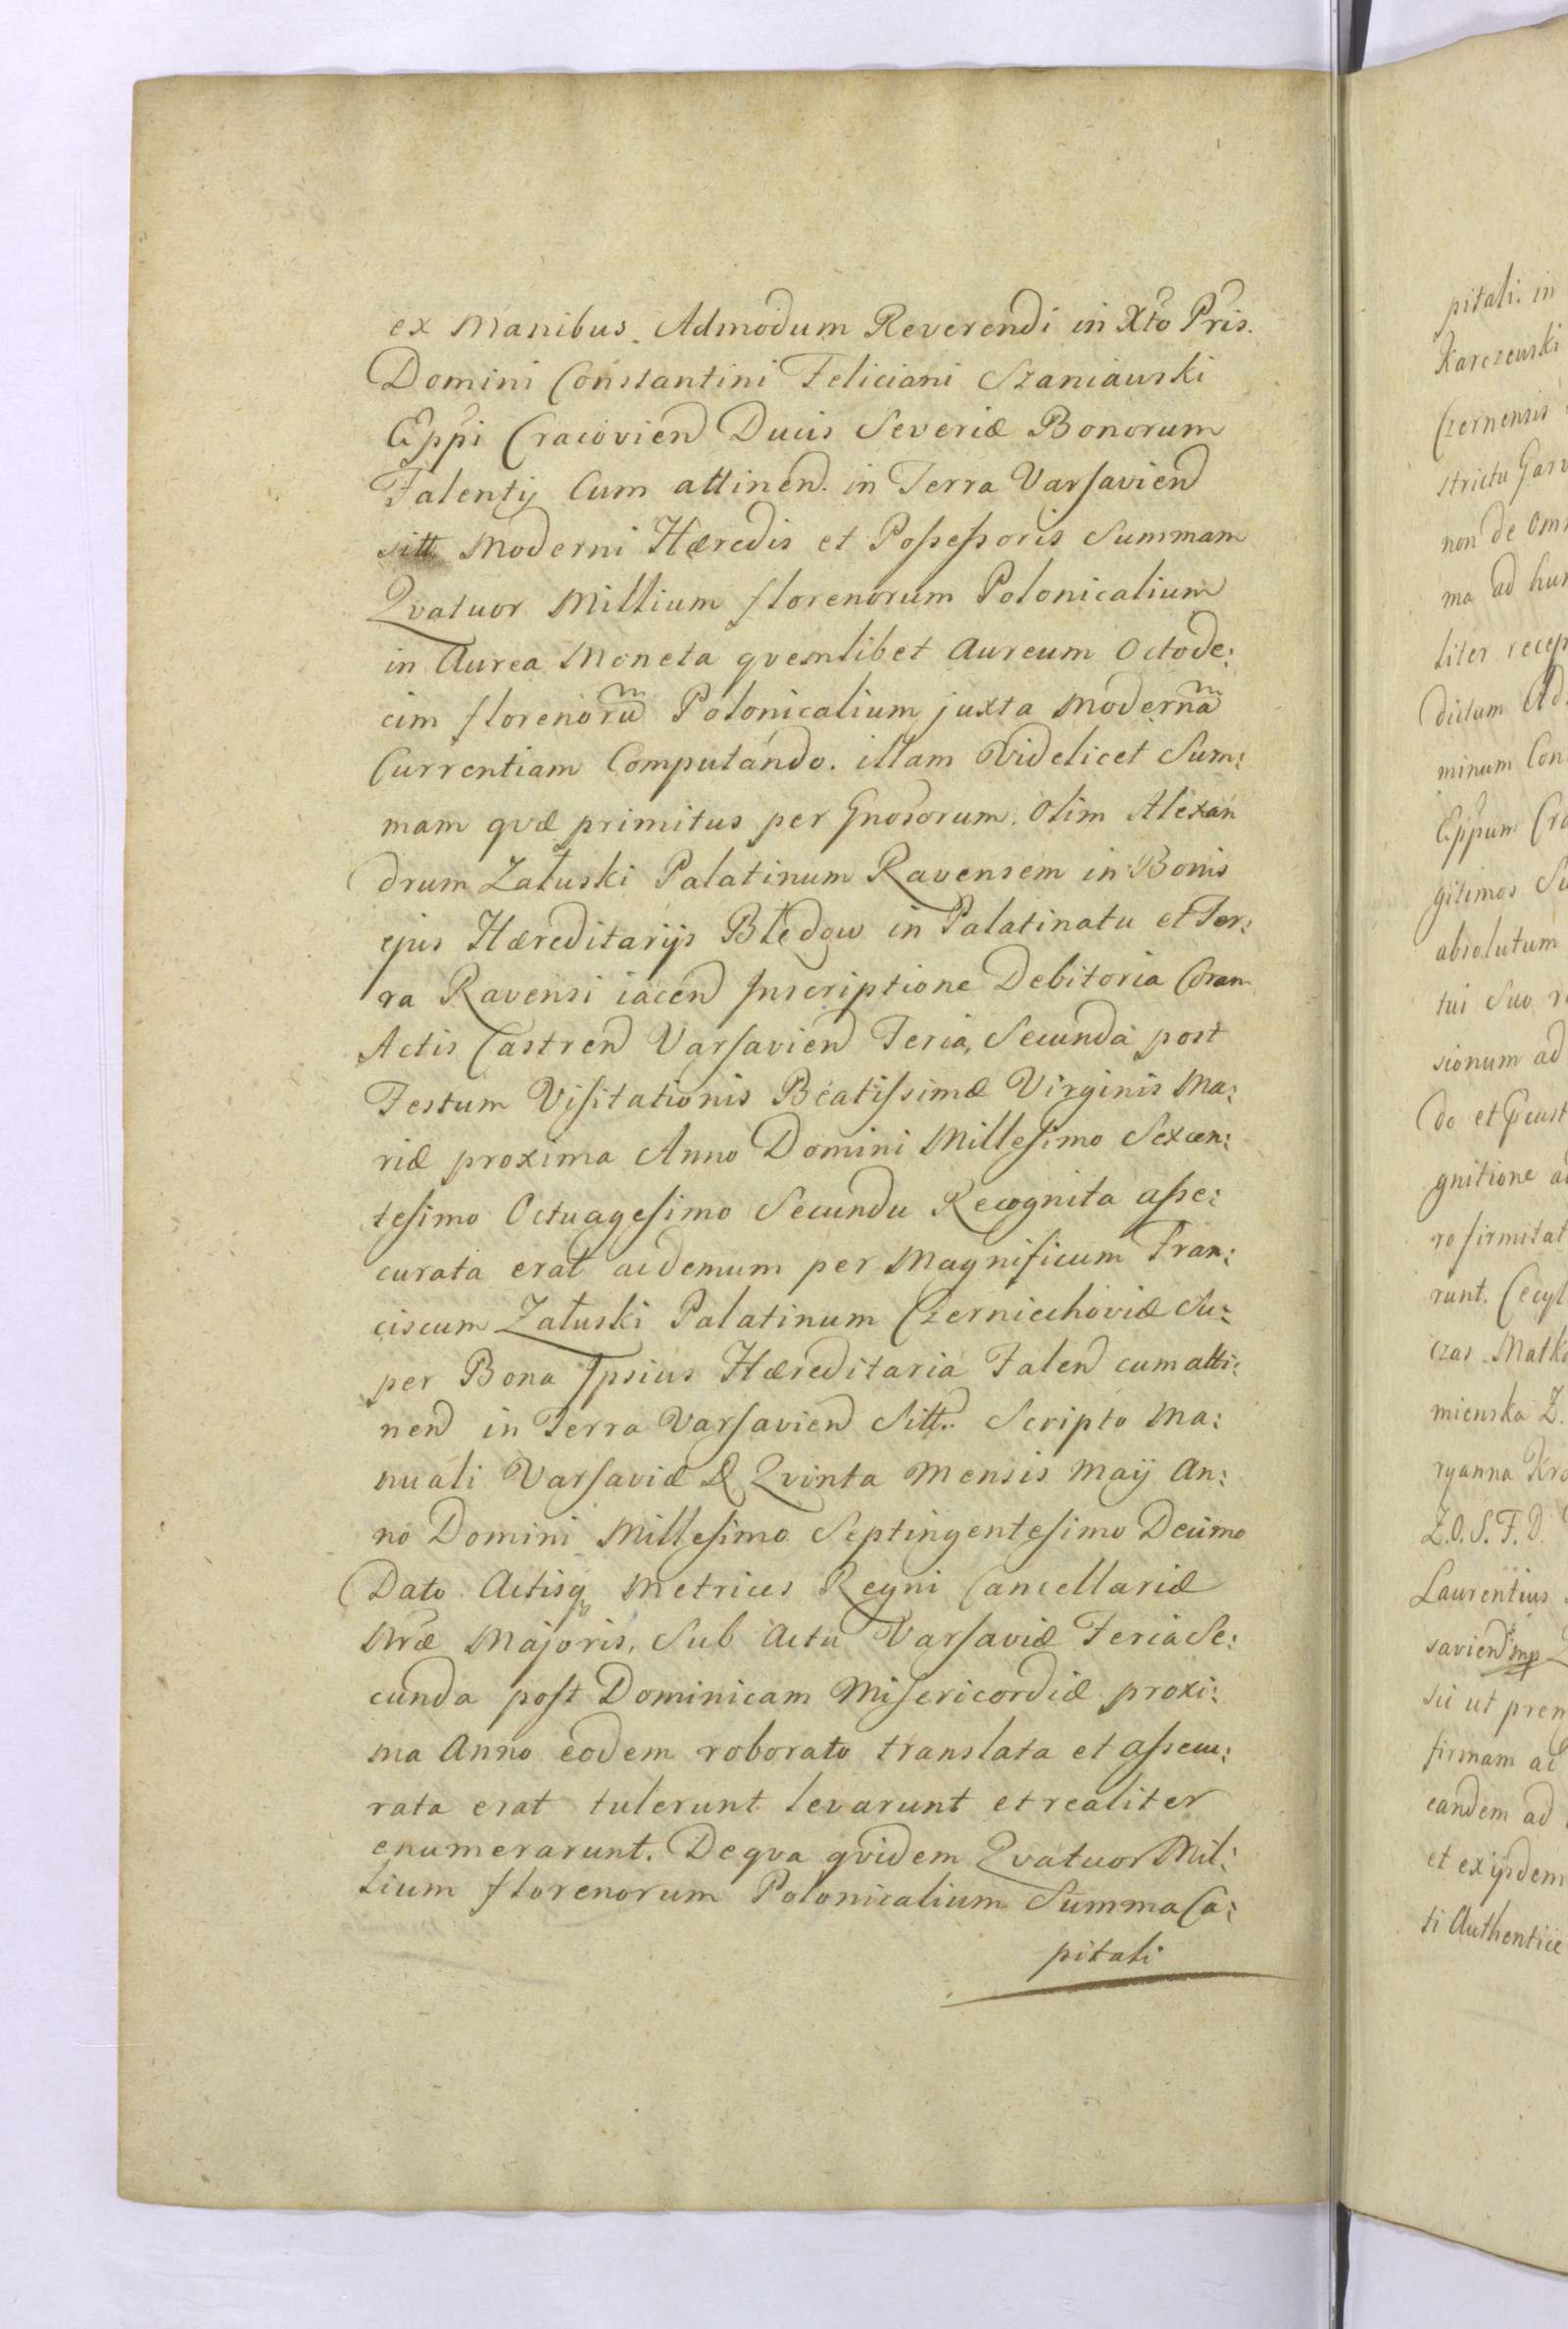 ex Manibus Admodum Reverendi in Xto Pris.
Domini Constantini Feliciani Szaniawski
Eppi Cracovien Ducis Severiæ Bonorum
Falenty Cum attinen. in Terra Varsavien
sitt Moderni Hæredis et Possessoris Summam
Qvatuor Millium florenorum Polonicalium
in Aurea Moneta qvemlibet Aureum Octode:
cim florenorũ Polonicalium juxta Modernã
Currentiam Computando. illam Videlicet Sum:
mam qvæ primitus per Gnosorum. Olim Alexan
drum Załuski Palatinum Ravensem in Bonis
ejus Hæreditarijs Błędow in Palatinatu et Ter:
ra Ravensi iacen Inscriptione Debitoria Coram
Actis Castren Varsavien Feria Secunda post
Festum Visitationis Beatissimæ Virginis Ma:
riæ proxima Anno Domini Millesimo Sexcen:
tesimo Octuagesimo Secundu Recognita asse:
curata erat acdemum per Magnificum Fran:
ciscum Załuski Palatinum Czerniechoviæ Su:
per Bona Ipsius Hæreditaria Falen cum atti:
nen in Terra Varsavien Sitt. Scripto Ma:
nuali Varsaviæ D Qvinta Mensis Maÿ An:
no Domini Millesimo Septingentesimo Decimo
Dato Actisq Metrices Regni Cancellariæ
Nræ Majoris, Sub Actu Varsaviæ Feria Se:
cunda post Dominicam Misericordiæ proxi:
ma Anno eodem roborato translata et assecu:
rata erat tulerunt levarunt et realiter
enumerarunt. De qva qvidem Qvatuor Mil:
lium florenorum Polonicalium Summa Ca:
pitali
pitali. in
Karczewski
Czernensis
strictu Garv
non de Om
ma ad hu
liter recep
dictum Ad
minum Con
Eppum Cra
gitimos Su
absolutum
tui Suo r
sionum ad
do et
gnitione a
ro firmitat
runt. Cecyl
czas Matk
mienska Z.
ryanna Kro
Z.O.S.F.D.
Laurentius
savien mp
sii ut prem
firmam ac
eandem ad
et exijsdem
ti Authentice